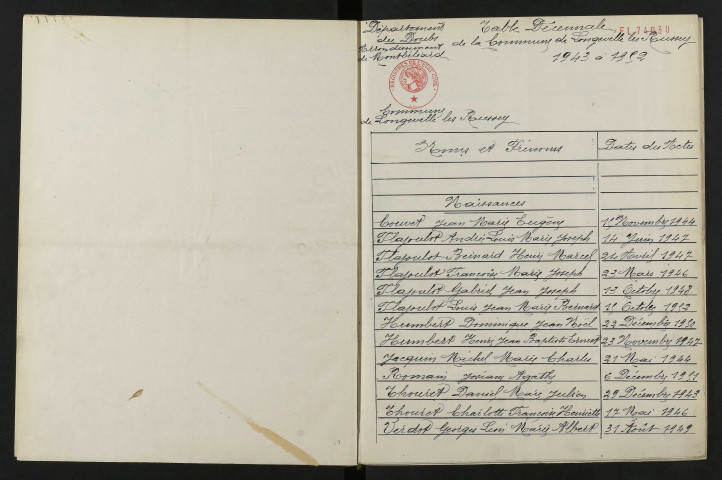 Département
du Doubs
Arrondissement
de Montbéliard
Table Décennale
de la Commune de Longevelle les Russey
1943 à 1952
Commune
de Longevelle les Russey
Noms et Prénoms Dates des Actes
Naissances
Couvet Jean Marie Eugène 1er Novembre 1944
Flajoulot André Louis Marie Joseph 14 Juin 1947
Flajoulot Bernard Henri Marcel 24 Avril 1947
Flajoulot François Marie Joseph 23 Mars 1946
Flajoulot Gabriel Jean Joseph 13 Octobre 1948
Flajoulot Louis Jean Marie Bernard 1er Octobre 1952
Humbert Dominique Jean Noël 22 Décembre 1950
Humbert Henri Jean Baptiste Ernest 23 Novembre 1947
Jacquin Michel Marie Charles 21 Mai 1944
Romain Josiane Agathe 6 Décembre 1951
Thouret Daniel Marc Julien 29 Décembre 1943
Thouret Charlotte Françoise Henriette 17 Mai 1946
Verdot Georges Léon Marie Albert 31 Août 1949